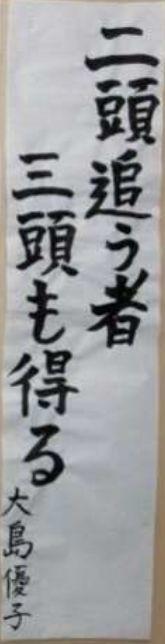 二頭追う者
三頭も得る
大島優子